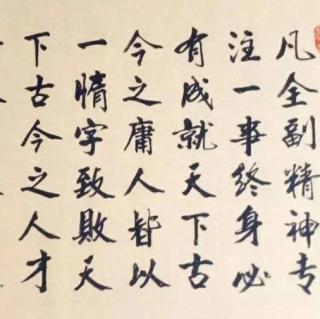 凡全副精神专
注一事终身必
有成就天下古
今之庸人皆以
一惰字致敗天
下古今之人才